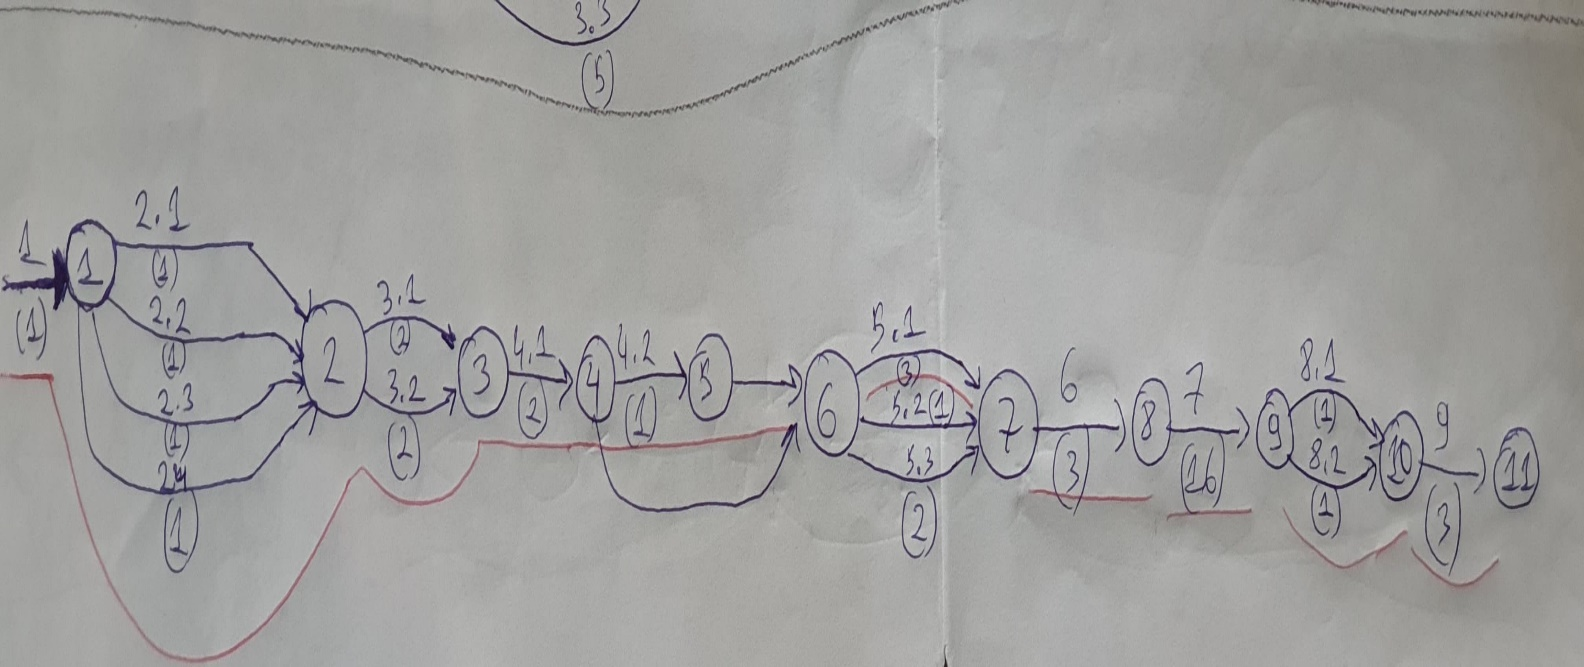 3.3
(5)
1
(1)
1
2.1
(1)
2.2
(1)
2.3
(1)
2.4
(1)
2
3.1
(2)
3.2
(2)
3
4.1
(2)
4
4.2
(1)
5
6
5.1
(3)
5.2(1)
5.3
(2)
7
6
(3)
8
7
(16)
9
8.1
(1)
8.2
(1)
10
9
(3)
11